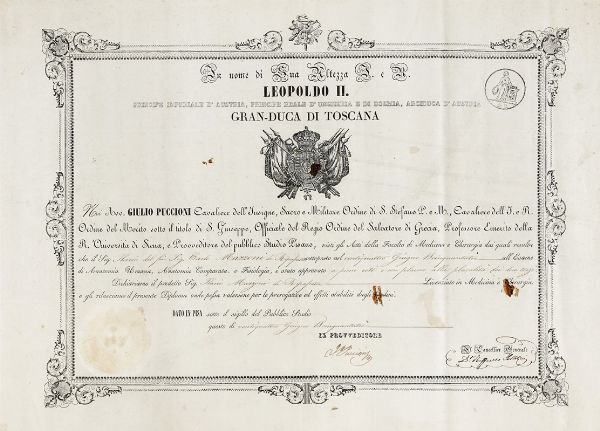 In nome di Sua Altezza I. e R.
LEOPOLDO II.
PRINCIPE IMPERIALE D'AUSTRIA, PRINCIPE REALE D'UNGHERIA E DI BOEMIA, ARCIDUCA D'AUSTRIA
GRAN-DUCA DI TOSCANA
Noi Avv. GIULIO PUCCIONI Cavaliere dell'Insigne, Sacro e Militare Ordine di S. Stefano P. e M., Cavaliere dell'I. e R.
Ordine del Merito sotto il titolo di S. Giuseppe, Officiale del Regio Ordine del Salvatore di Grecia, Professore Emerito della
R. Università di Siena, e Provveditore del pubblico Studio Pisano, visti gli Atti della Facoltà di Medicina e Chirurgia dai quali risulta
che il Sig. del fu Sig. sottoposto nel ventiquattro Giugno all'Esame
di Anatomia Umana, Anatomia Comparata, e Fisiologia, è stato approvato a pieni voti e con plauso
Dichiariamo il predetto Sig. Licenziato in Medicina e Chirurgia,
e gli rilasciamo il presente Diploma onde possa valersene per le prerogative ed effetti stabiliti dagli Ordini.
DATO IN PISA sotto il sigillo del Pubblico Studio
questo dì ventiquattro Giugno
IL PROVVEDITORE
Il Cancelliere Generale